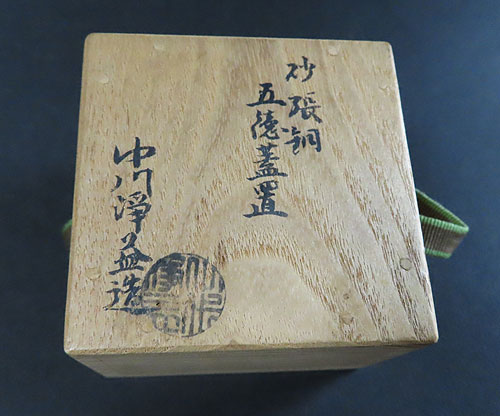 砂張銅
五徳蓋置
中川淨益造